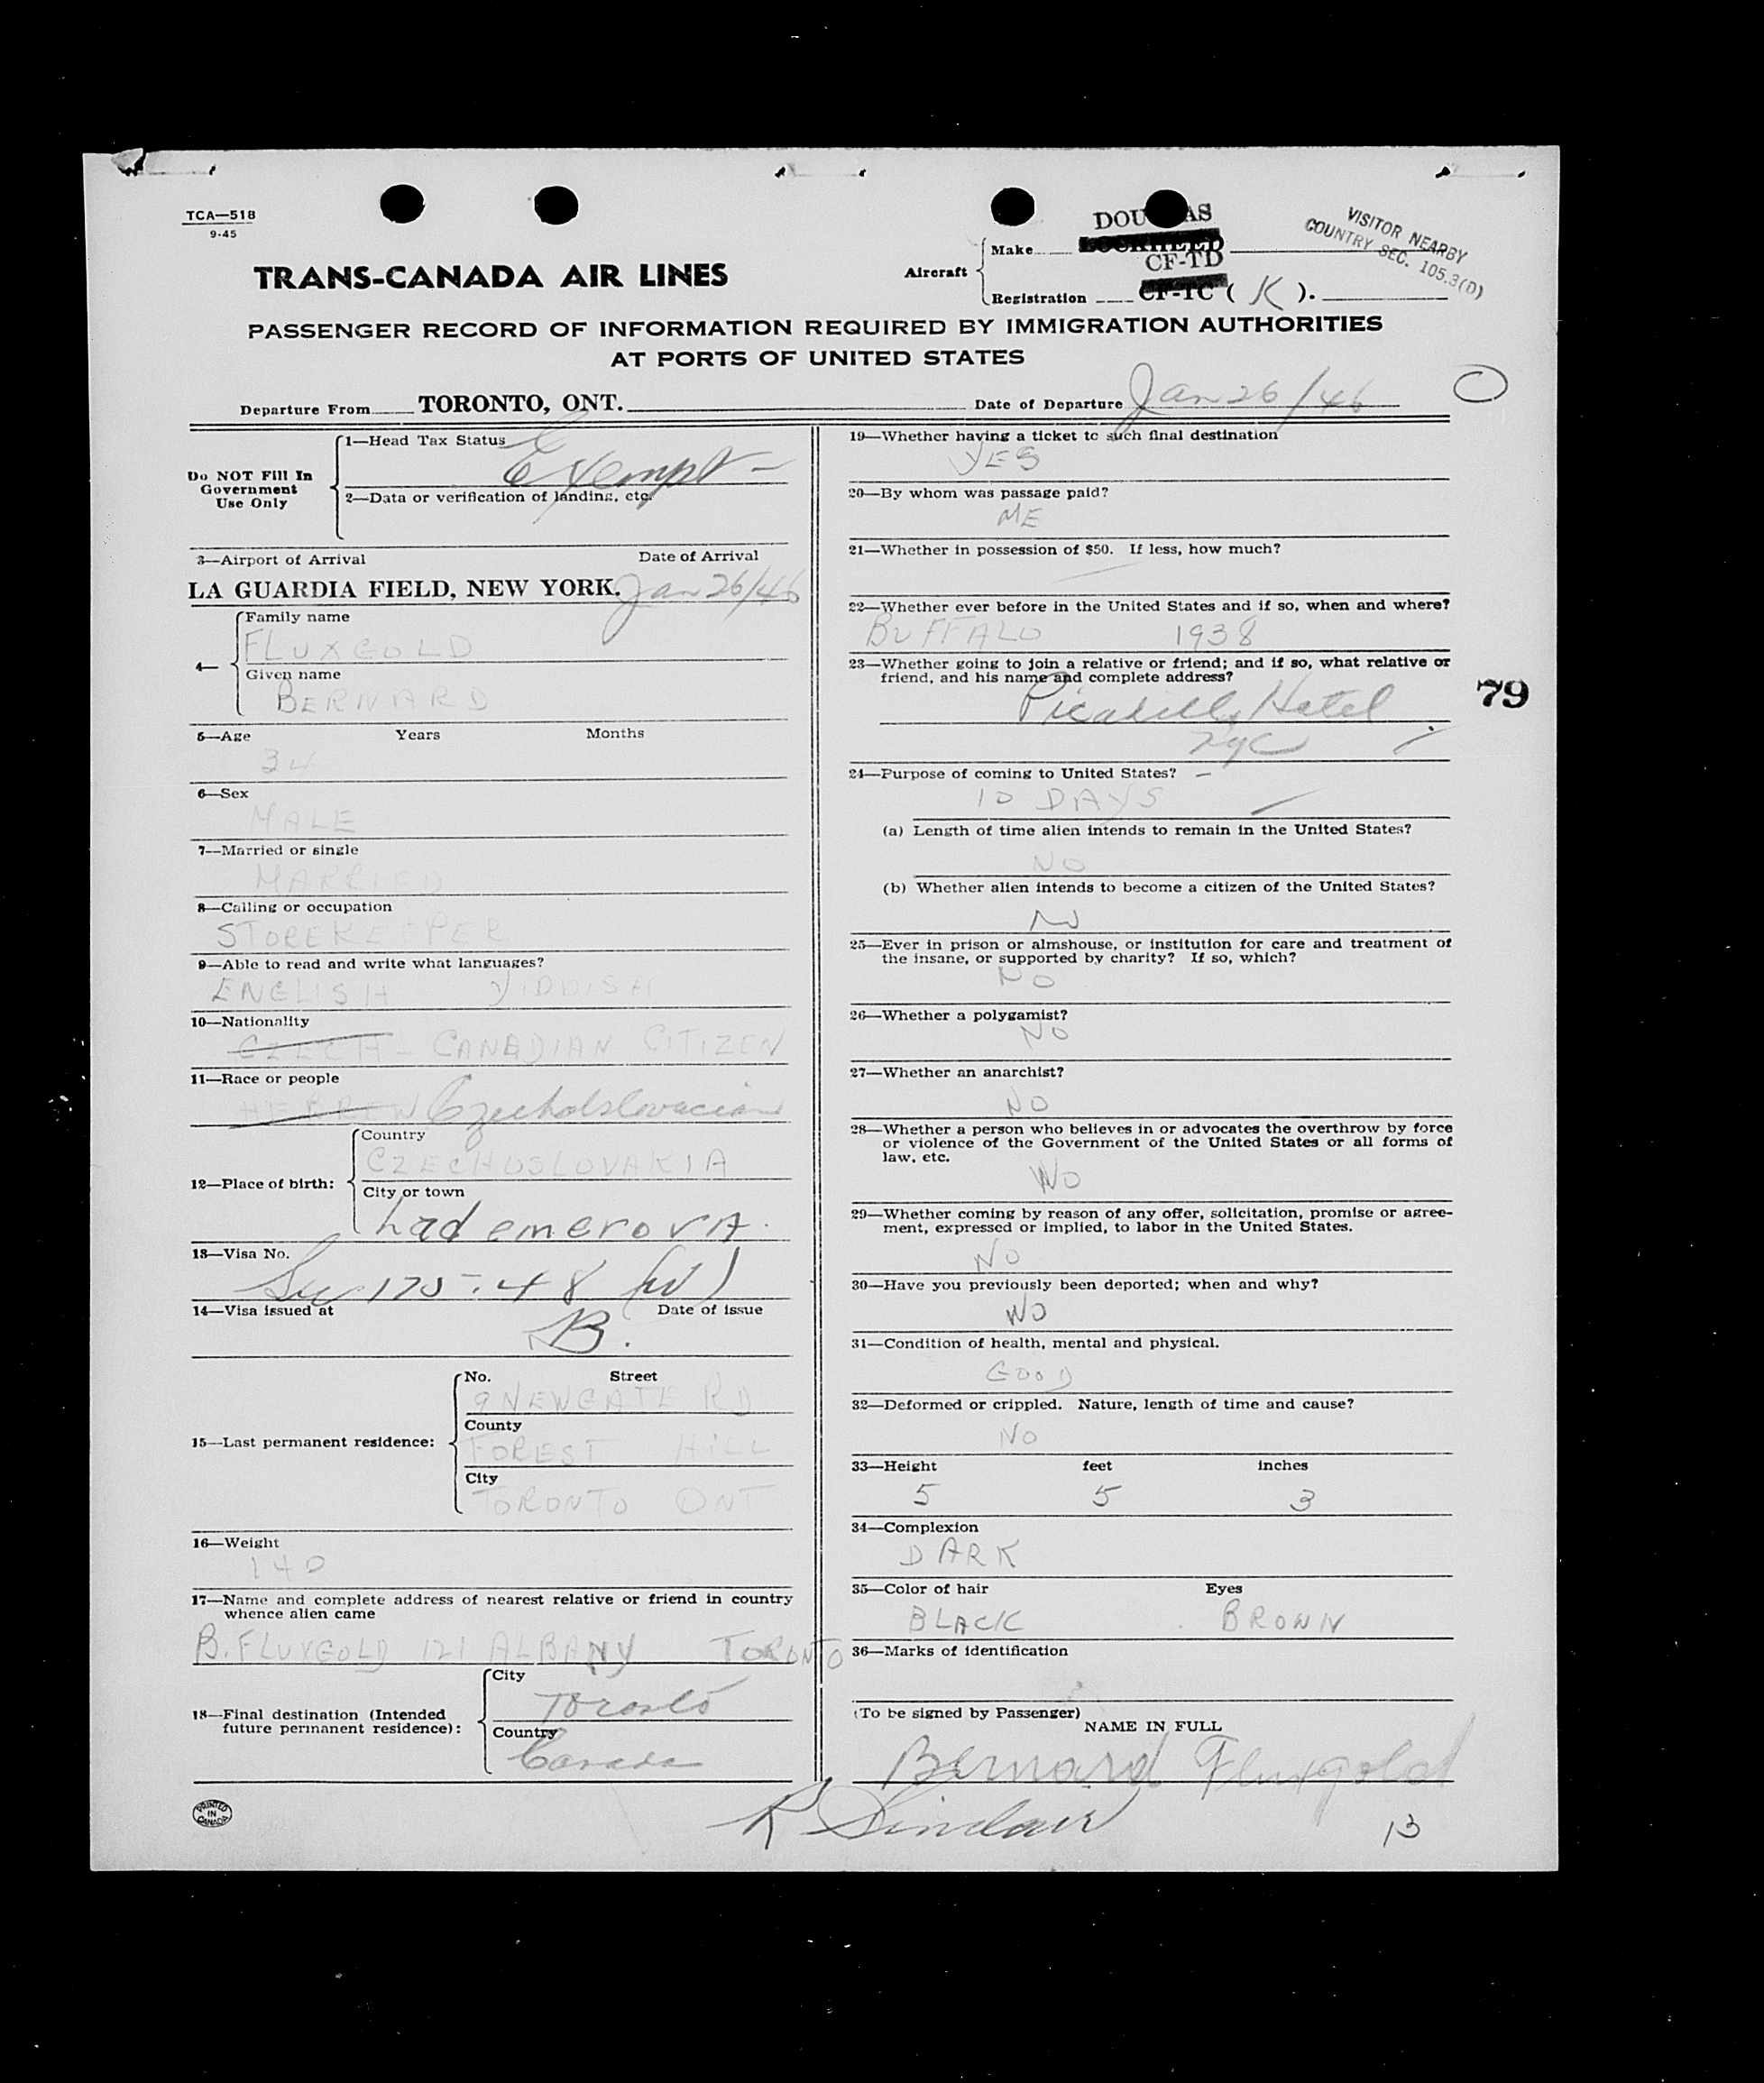 TCA—518
9-45
TRANS-CANADA AIR LINES
Aircraft
Make
DOUGLAS
LOCKHEED
CF-TD
Registration CF-TC ( K ).
VISITOR NEARBY
COUNTRY SEC. 105.3(D)
PASSENGER RECORD OF INFORMATION REQUIRED BY IMMIGRATION AUTHORITIES
AT PORTS OF UNITED STATES
Departure From TORONTO, ONT. Date of Departure Jan 26/46
Do NOT Fill In
Government
Use Only
1—Head Tax Status
Exempt -
2—Data or verification of landing, etc.
3—Airport of Arrival Date of Arrival
LA GUARDIA FIELD, NEW YORK. Jan 26/46
4—
Family name
FLUXGOLD
Given name
BERNARD
5—Age Years Months
34
6—Sex
MALE
7—Married or single
MARRIED
8—Calling or occupation
STOREKEEPER
9—Able to read and write what languages?
ENGLISH YIDDISH
10—Nationality
CZECH - CANADIAN CITIZEN
11—Race or people
HEBREW Czechoslovacian
12—Place of birth:
Country
CZECHOSLOVAKIA
City or town
13—Visa No.
175-48 (W)
14—Visa issued at Date of issue
B.
15—Last permanent residence:
No. Street
9 NEWGATE RD
County
FOREST HILL
City
TORONTO ONT
16—Weight
140
17—Name and complete address of nearest relative or friend in country
whence alien came
B. FLUXGOLD 121 ALBANY TORONTO
18—Final destination (Intended
future permanent residence):
City
Toronto
Country
Canada
PRINTED
IN
CANADA
19—Whether having a ticket to such final destination
YES
20—By whom was passage paid?
ME
21—Whether in possession of $50. If less, how much?
22—Whether ever before in the United States and if so, when and where?
BUFFALO 1938
23—Whether going to join a relative or friend; and if so, what relative or
friend, and his name and complete address?
Picadilly Hotel
NYC
79
24—Purpose of coming to United States? -
10 DAYS
(a) Length of time alien intends to remain in the United States?
NO
(b) Whether alien intends to become a citizen of the United States?
NO
25—Ever in prison or almshouse, or institution for care and treatment of
the insane, or supported by charity? If so, which?
NO
26—Whether a polygamist?
NO
27—Whether an anarchist?
NO
28—Whether a person who believes in or advocates the overthrow by force
or violence of the Government of the United States or all forms of
law, etc.
NO
29—Whether coming by reason of any offer, solicitation, promise or agree-
ment, expressed or implied, to labor in the United States.
NO
30—Have you previously been deported; when and why?
NO
31—Condition of health, mental and physical.
GOOD
32—Deformed or crippled. Nature, length of time and cause?
NO
33—Height feet inches
5 5 3
34—Complexion
DARK
35—Color of hair Eyes
BLACK BROWN
36—Marks of identification
(To be signed by Passenger)
NAME IN FULL
Bernard Fluxgold
R Sinclair
13